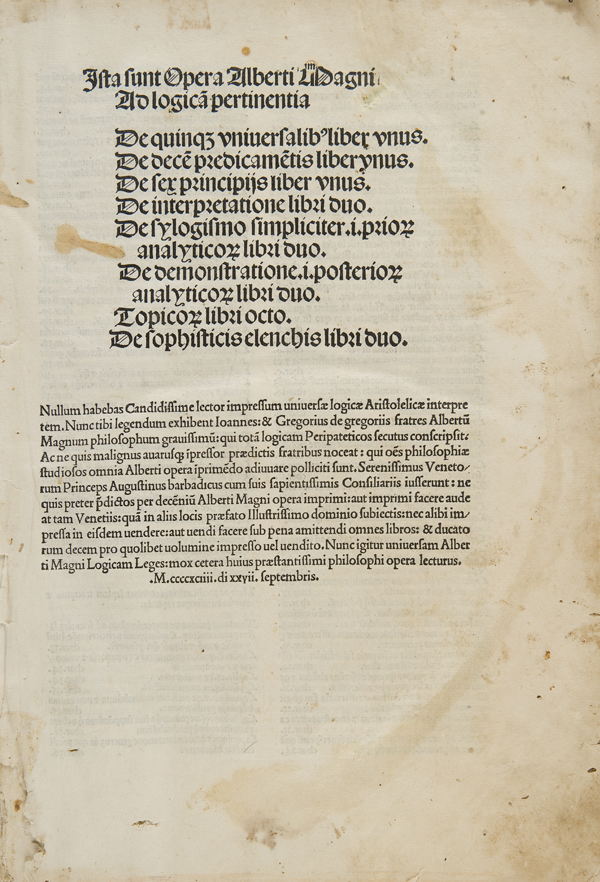 Ista sunt Opera Alberti Magni
Ad logicã pertinentia
De quinqꝫ vniuersalibꝰ liber vnus.
De decẽ predicamẽtis liber vnus.
De sex principijs liber vnus.
De interpretatione libri duo.
De sylogismo simpliciter .i. prioꝝ
analyticoꝝ libri duo.
De demonstratione .i. posterioꝝ
analyticoꝝ libri duo.
Topicoꝝ libri octo.
De sophisticis elenchis libri duo.
Nullum habebas Candidissime lector impressum uniuersæ logicæ Aristotelicæ interpre
tem. Nunc tibi legendum exhibent Ioannes: & Gregorius de gregoriis fratres Albertũ
Magnum philosophum grauissimũ: qui totã logicam Peripateticos secutus conscripsit.
Ac ne quis malignus auarusqꝫ ĩpressor prædictis fratribus noceat: qui oẽs philosophiæ
studiosos omnia Alberti opera ĩprimẽdo adiuuare polliciti sunt. Serenissimus Veneto⸗
rum Princeps Augustinus barbadicus cum suis sapientissimis Consiliariis iusserunt: ne
quis preter p̃dictos per decẽniũ Alberti Magni opera imprimi: aut imprimi facere aude
at tam Venetiis: quã in aliis locis præfato Illustrissimo dominio subiectis: nec alibi im⸗
pressa in eisdem uendere: aut uendi facere sub pena amittendi omnes libros: & ducato
rum decem pro quolibet uolumine impresso uel uendito. Nunc igitur uniuersam Alber
ti Magni Logicam Leges: mox cetera huius præstantissimi philosophi opera lecturus.
.M.ccccxciiii. di xxyii. septembris.